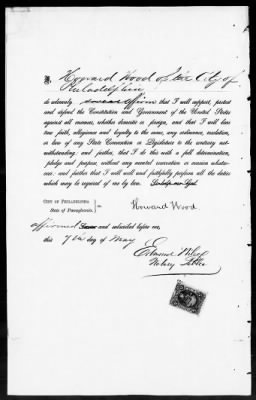 I, Howard Wood of the City of
Philadelphia
do solemnly swear affirm that I will support, protect
and defend the Constitution and Government of the United States
against all enemies, whether domestic or foreign, and that I will bear
true faith, allegiance and loyalty to the same, any ordinance, resolution,
or law of any State Convention or Legislature to the contrary not-
withstanding; and further, that I do this with a full determination,
pledge and purpose, without any mental reservation or evasion whatso-
ever; and further that I will well and faithfully perform all the duties
which may be required of me by law. So help me God.
CITY OF PHILADELPHIA
State of Pennsylvania. } ss.
Howard Wood.
affirmed Sworn and subscribed before me,
this 7th day of May
Notary Public